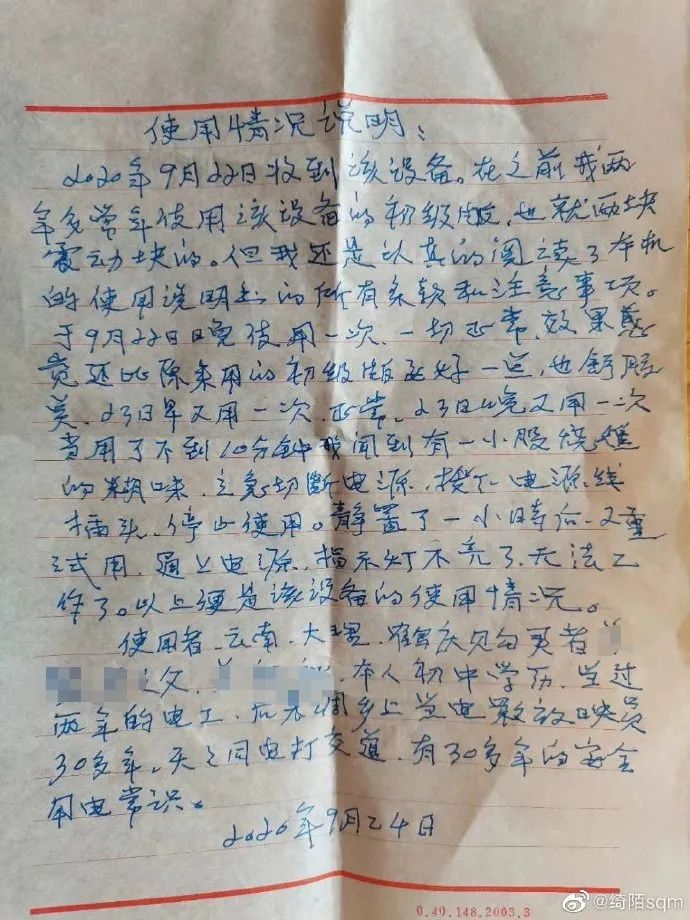 使用情况说明:
2020年9月22日收到该设备。在之前我两
年多常年使用该设备的初级版,也就两块
震动块的。但我还是认真的阅读了本机
的使用说明书的所有条款和注意事项。
于9月22日晚使用一次,一切正常,效果感
觉还比原来用的初级版还好一点,也舒服
些,23日早又用一次,正常,23日晚又用一次
当用了不到10分钟我闻到有一小股烧焦
的糊味,立急切断电源,拔下电源线
插头,停止使用。静置了一小时后,又重
试用,通上电源,指示灯不亮了,无法工
作了。以上便是该设备的使用情况。
使用者,云南,大理,鹤庆购买者
之父,本人初中学历,当过
两年的电工,后来调乡上当电影放映员
30多年,天天同电打交道,有30多年的安全
用电常识。
2020年9月24日
0.40.148.2003.3
@绮陌sqm